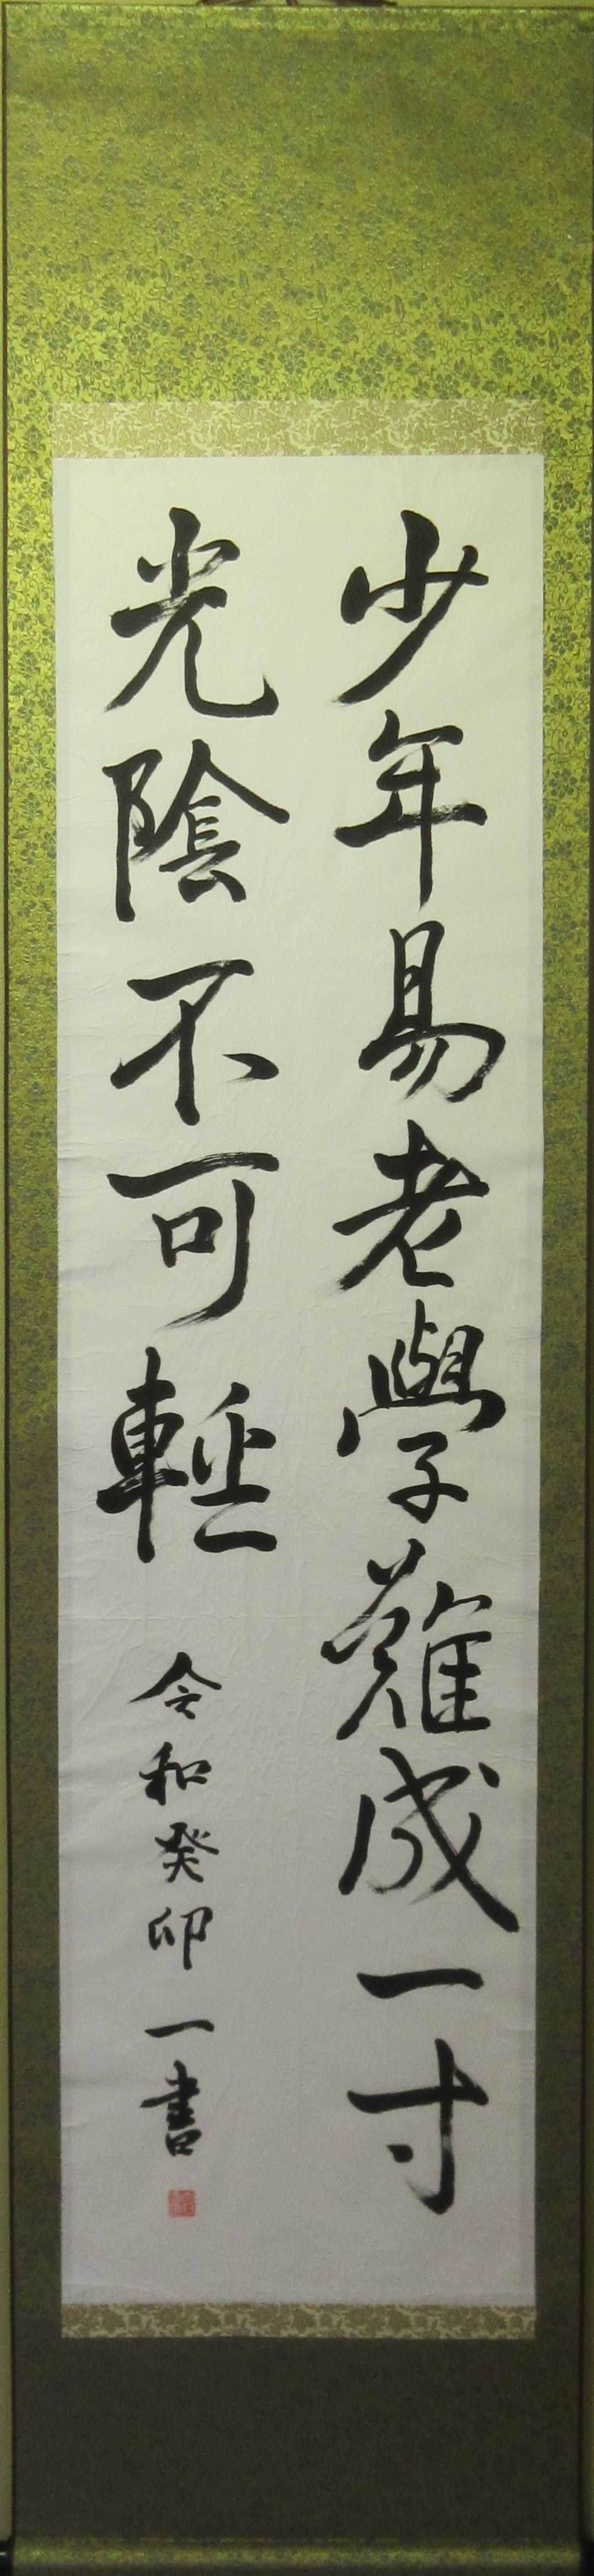 少年易老學難成一寸
光陰不可輕
令和癸卯 一書